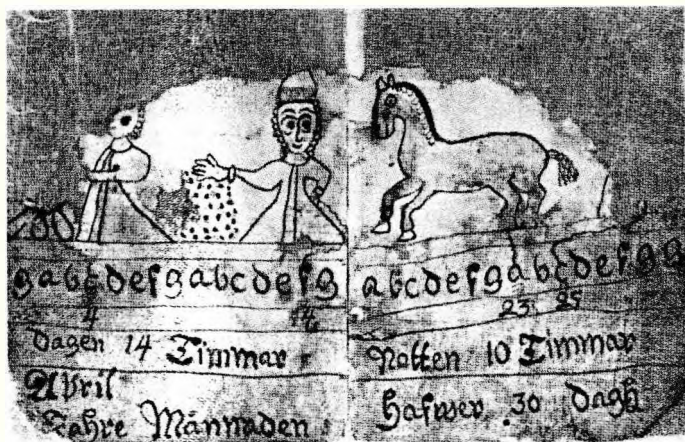 gabcdefgabcdefg
4 14
Dagen 14 Timmar
April
Månnaden
abcdefgabcdefgg
23 25
Natten 10 Timmar
hafwer 30 dagh